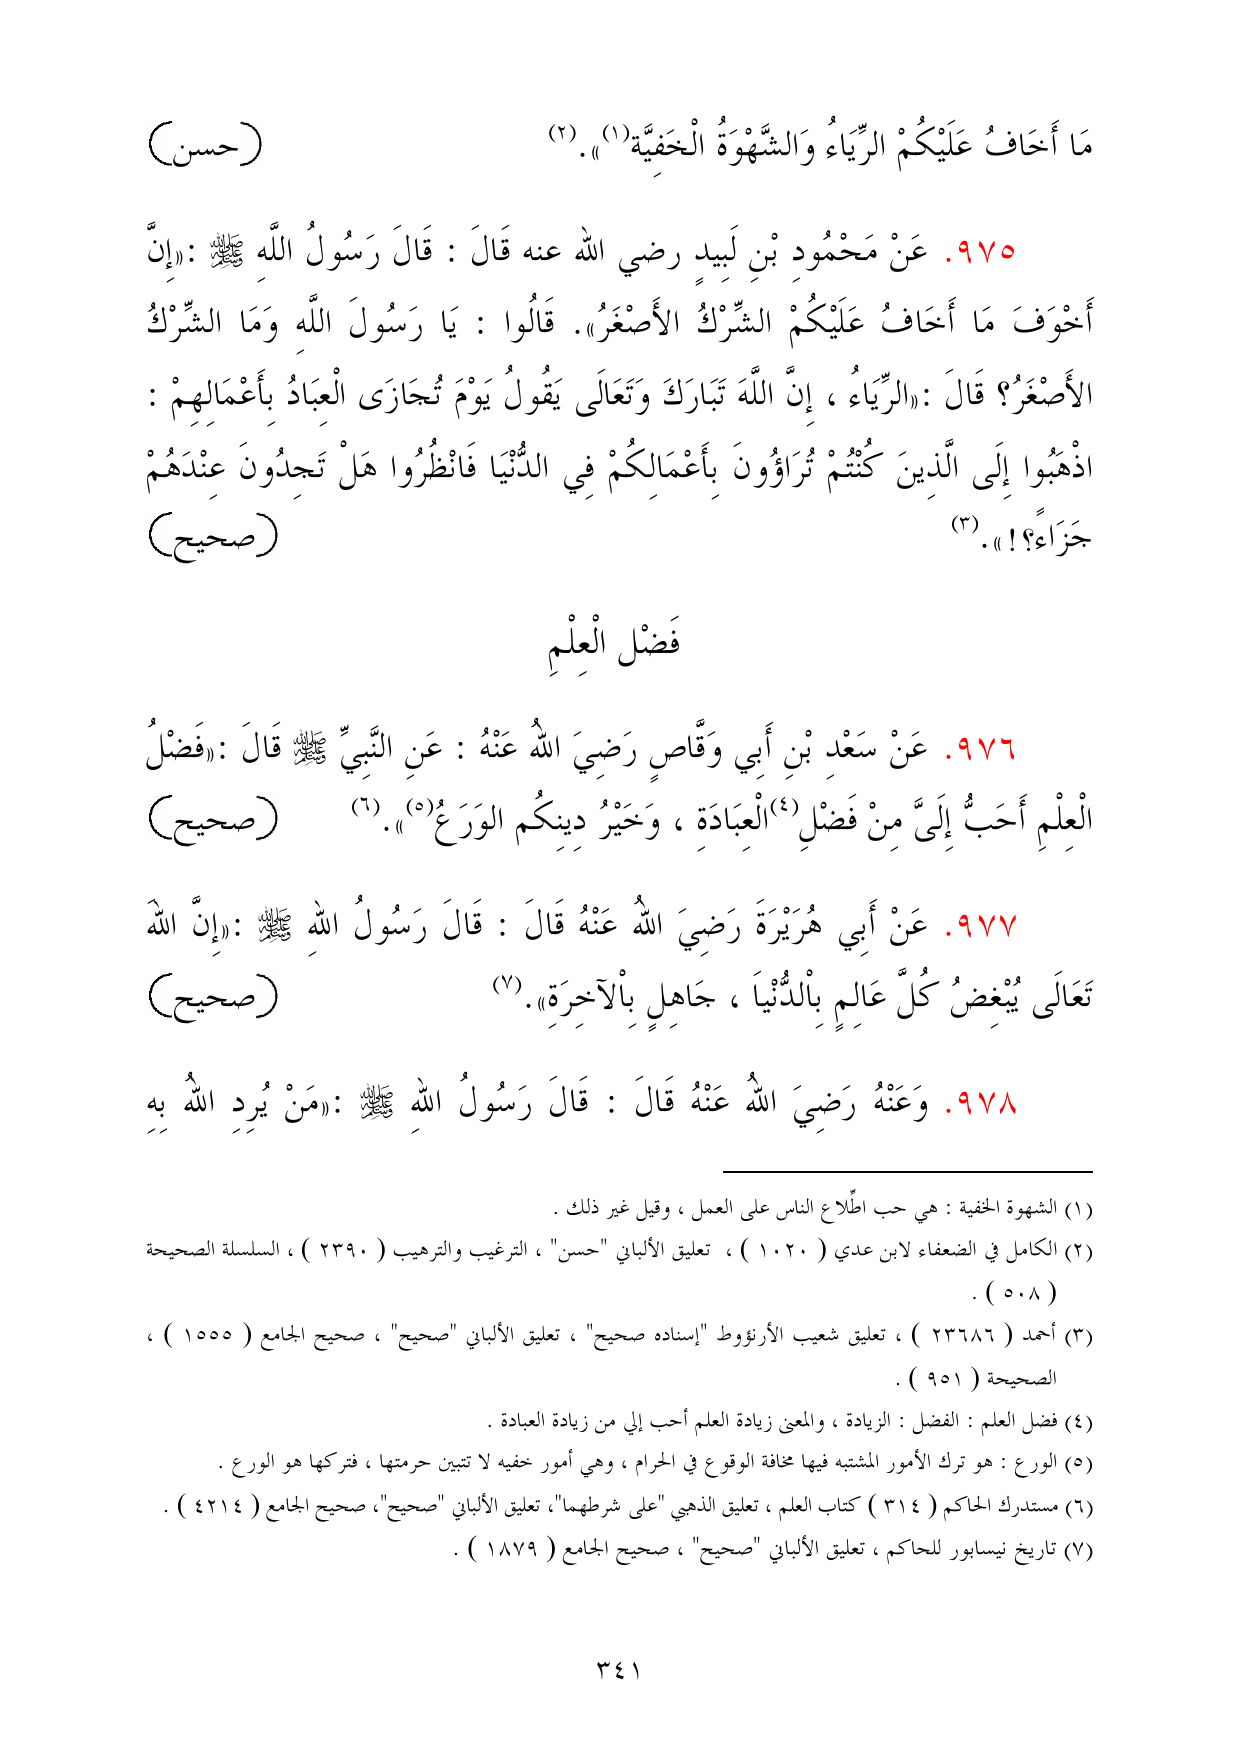 مَا أَخَافُ عَلَيْكُمْ الرِّيَاءُ وَالشَّهْوَةُ الْخَفِيَّة(١)». (٢) (حسن)
٩٧٥. عَنْ مَحْمُودِ بْنِ لَبِيدٍ رضي الله عنه قَالَ : قَالَ رَسُولُ اللَّهِ ﷺ :«إِنَّ
أَخْوَفَ مَا أَخَافُ عَلَيْكُمْ الشِّرْكُ الأَصْغَرُ». قَالُوا : يَا رَسُولَ اللَّهِ وَمَا الشِّرْكُ
الأَصْغَرُ؟ قَالَ :«الرِّيَاءُ ، إِنَّ اللَّهَ تَبَارَكَ وَتَعَالَى يَقُولُ يَوْمَ تُجَازَى الْعِبَادُ بِأَعْمَالِهِمْ :
اذْهَبُوا إِلَى الَّذِينَ كُنْتُمْ تُرَاؤُونَ بِأَعْمَالِكُمْ فِي الدُّنْيَا فَانْظُرُوا هَلْ تَجِدُونَ عِنْدَهُمْ
جَزَاءً؟!». (٣) (صحيح)
فَضْل الْعِلْمِ
٩٧٦. عَنْ سَعْدِ بْنِ أَبِي وَقَّاصٍ رَضِيَ اللهُ عَنْهُ : عَنِ النَّبِيِّ ﷺ قَالَ :«فَضْلُ
الْعِلْمِ أَحَبُّ إِلَىَّ مِنْ فَضْلِ(٤)الْعِبَادَةِ ، وَخَيْرُ دِينِكُم الوَرَعُ(٥)». (٦) (صحيح)
٩٧٧. عَنْ أَبِي هُرَيْرَةَ رَضِيَ اللهُ عَنْهُ قَالَ : قَالَ رَسُولُ اللهِ ﷺ :«إِنَّ اللهَ
تَعَالَى يُبْغِضُ كُلَّ عَالِمٍ بِاْلدُّنْياَ ، جَاهِلٍ بِاْلآخِرَةِ». (٧) (صحيح)
٩٧٨. وَعَنْهُ رَضِيَ اللهُ عَنْهُ قَالَ : قَالَ رَسُولُ اللهِ ﷺ :«مَنْ يُرِدِ اللهُ بِهِ
(١) الشهوة الخفية : هي حب اطِّلاع الناس على العمل ، وقيل غير ذلك .
(٢) الكامل في الضعفاء لابن عدي ( ١٠٢٠ ) ، تعليق الألباني "حسن" ، الترغيب والترهيب ( ٢٣٩٠ ) ، السلسلة الصحيحة
( ٥٠٨ ) .
(٣) أحمد ( ٢٣٦٨٦ ) ، تعليق شعيب الأرنؤوط "إسناده صحيح" ، تعليق الألباني "صحيح" ، صحيح الجامع ( ١٥٥٥ ) ،
الصحيحة ( ٩٥١ ) .
(٤) فضل العلم : الفضل : الزيادة ، والمعنى زيادة العلم أحب إلي من زيادة العبادة .
(٥) الورع : هو ترك الأمور المشتبه فيها مخافة الوقوع في الحرام ، وهي أمور خفيه لا تتبين حرمتها ، فتركها هو الورع .
(٦) مستدرك الحاكم ( ٣١٤ ) كتاب العلم ، تعليق الذهبي "على شرطهما"، تعليق الألباني "صحيح"، صحيح الجامع ( ٤٢١٤ ) .
(٧) تاريخ نيسابور للحاكم ، تعليق الألباني "صحيح" ، صحيح الجامع ( ١٨٧٩ ) .
٣٤١